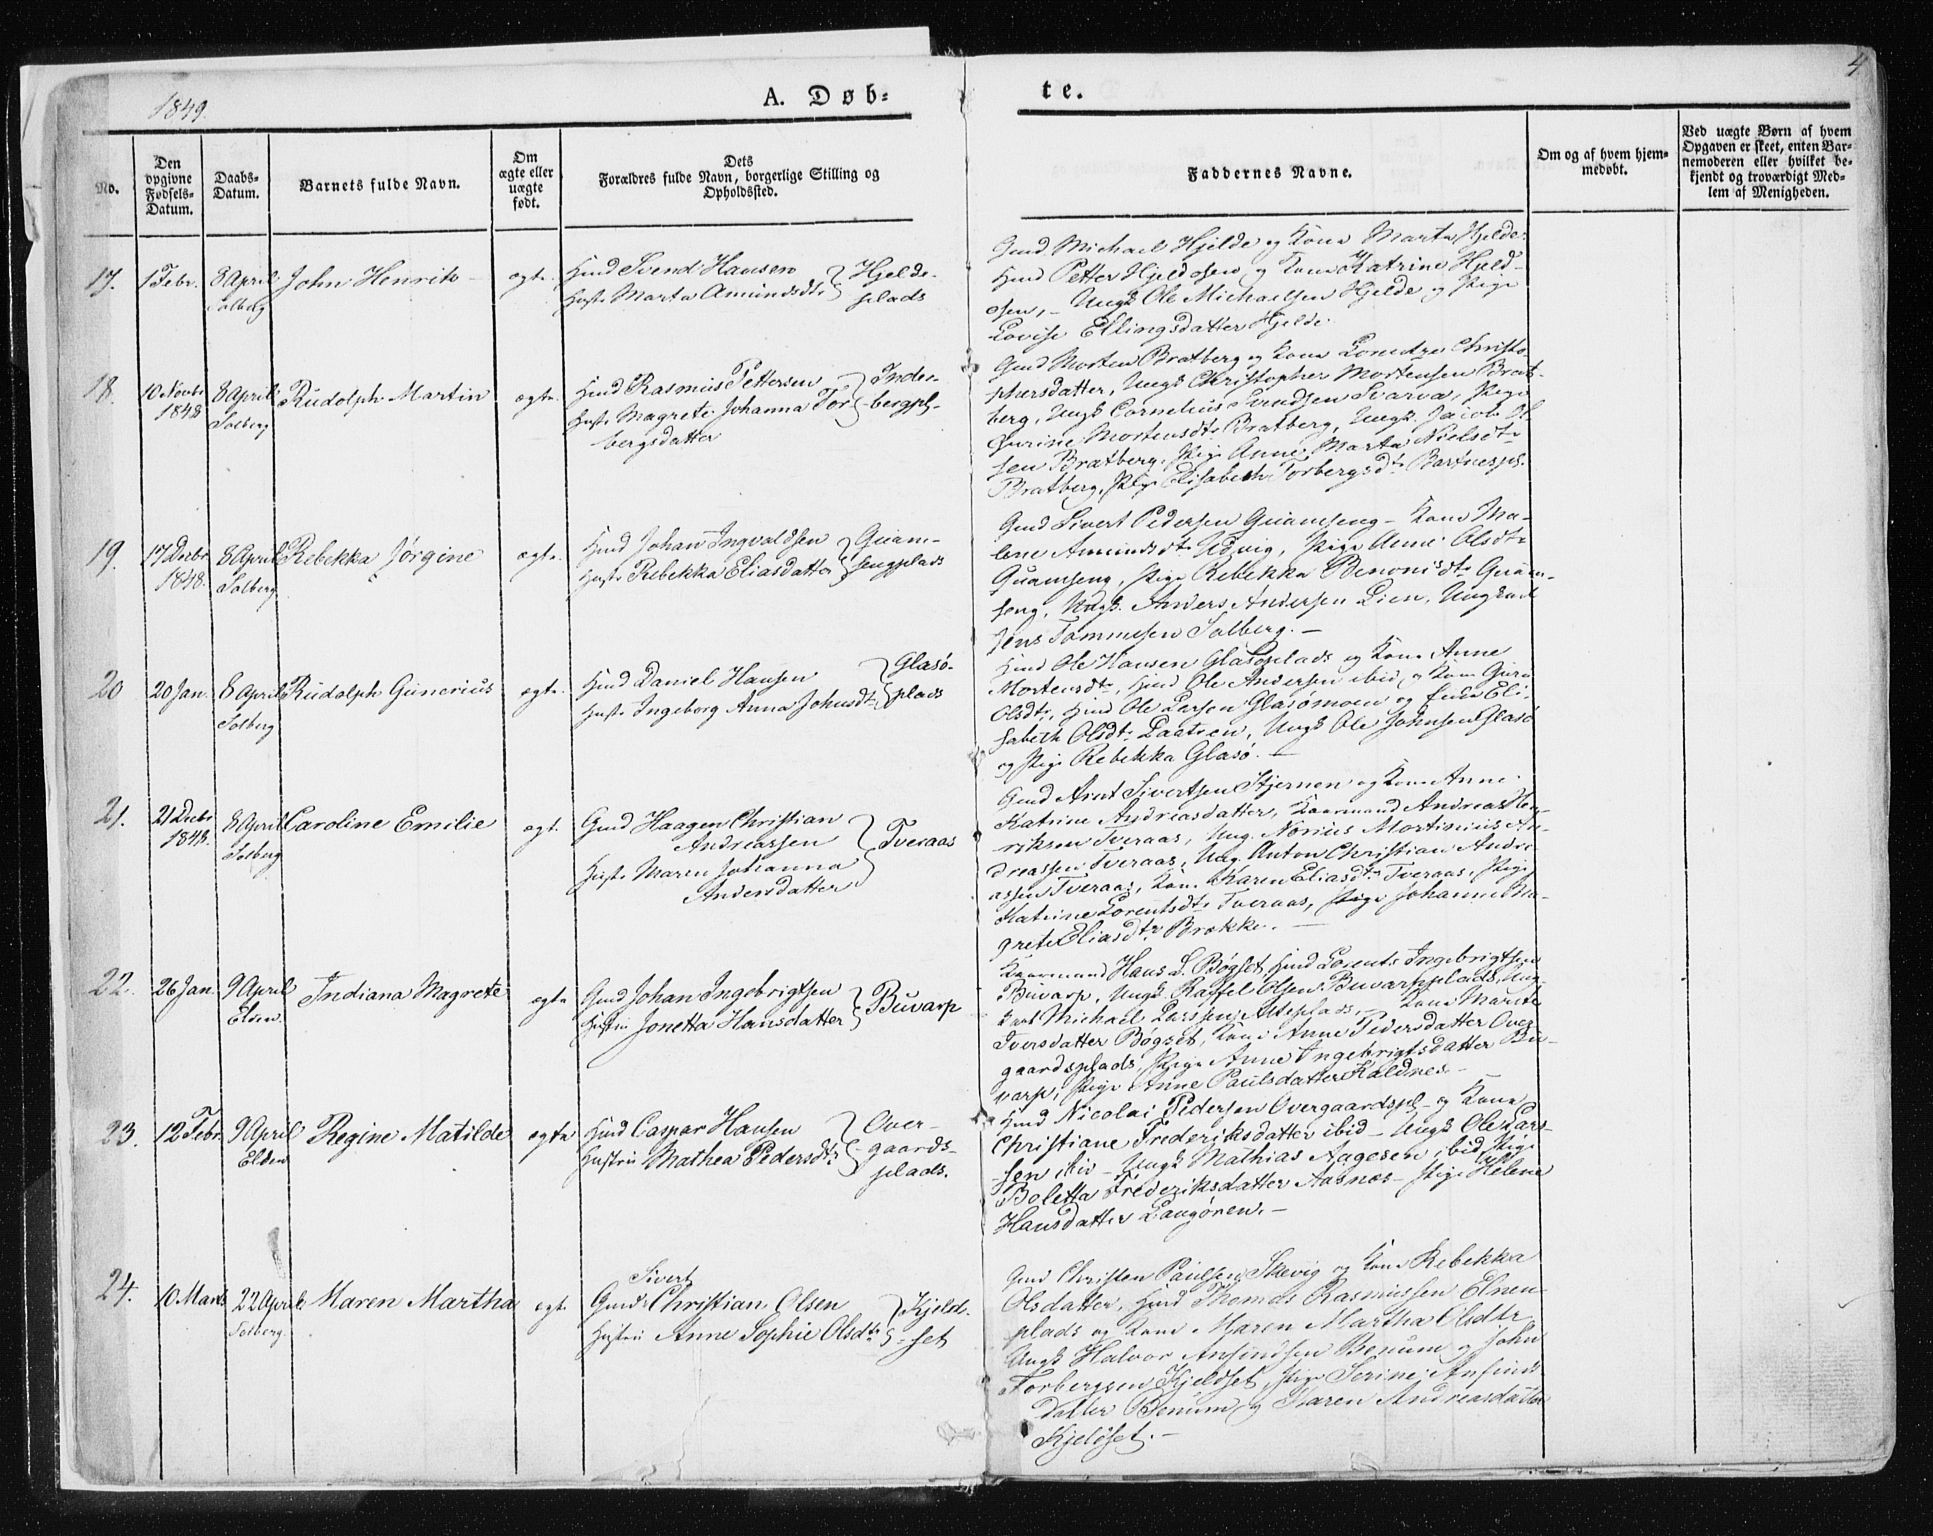 1849.
A. Døb-
te.
4
No.
Den opgivne Fødsels-Datum.
Daabs-Datum.
Barnets fulde Navn.
Om ægte eller uægte født.
Dets
Forældres fulde Navn, borgerlige Stilling og
Opholdssted.
Faddernes Navne.
Om og af hvem hjem-
medøbt.
Ved uægte Børn af hvem
Opgaven er skeet, enten Bar-
nemoderen eller hvilket be-
kjendt og troværdigt Med-
lem af Menigheden.
17. 1 Febr. 8 April Solberg John Henrik ægte
Hmd Svend Hansen
Hustr Marta Amundsdtr
Hjelde-
plads
Gmd Michael Hjelde og Kone Marta Hjelde.
Hmd Petter Hjeldesen og Kone Katrine Hjeld-
esen, Ungk Ole Michaelsen Hjelde og Pige
Lovise Ellingsdatter Hjelde
18. 10 Novbr 1848 8 April Solberg Rudolph Martin ægte
Hmd Rasmus Pettersen
Hustr Magrete Johanna Tor-
bergsdatter
Inder-
bergpl.
Gmd Morten Bratberg og Kone Lorentze Christo-
phersdatter, Ungk Christopher Mortensen Brat-
berg, Ungk Cornelius Svendsen Svarva, Pige
Mortensdtr Bratberg, Ungk. Jacob
sen Bratberg, Pige Anne Marta Nielsdtr
Bratberg, Pige Elisabeth Torbergsdtr Bartnespl.
19. 17 Decbr 1848. 8 April Solberg Rebekka Jørgine ægte
Hmd Johan Ingvaldsen
Hustr Rebekka Eliasdatter
Quam-
sengplads
Gmd Sivert Pedersen Quamseng - Kone Ma-
lene Amundsdtr Udvig, Pige Anne Olsdtr
Quamseng, Pige Rebekka Benonisdtr Quam-
seng, Ungk. Anders Andersen Lien, Ungkarl
Jens Tommesen Solberg. -
20 20 Jan. 8 April Solberg Rudolph Gunerius ægte
Hmd Daniel Hansen
Hustr Ingeborg Anna Johnsdtr
Glasø-
plads
Hmd Ole Hansen Glasøplads og Kone Anne
Mortensdtr, Hmd Ole Andersen ibid, og Kone Guru
Olsdtr, Hmd Ole Larsen Glasømoen og Enke Eli-
sabeth Olsdtr, Ungk Ole Johnsen Glasø
og Pige Rebekka Glasø. -
21. 21 Decbr 1848. 8 April Solberg Caroline Emilie ægt.
Gmd Haagen Christian
Andreassen
Hustr Maren Johanna
Andersdatter
Tveraas
Gmd Arnt Sivertsen Stjernen og Kone Anne
Katrine Andreasdatter, Kaarmand Andreas Hen-
riksen Tveraas, Ung. Nonius Mortinius An-
dreassen Tveraas, Ung. Anton Christian Andre-
assen Tveraas, Kone Karen Eliasdtr Tveraas, Pige
Katrine Lorentsdtr Tveraas, Pige Johanne Ma-
grete Eliasdtr Brække. -
22. 26 Jan. 9 April Elden. Indiana Magrete ægte
Gmd Johan Ingebrigtsen
Hustru Jonetta Hansdatter
Buvarp
Kaarmand Hans L. Bøgset, Hmd Lorents Ingebrigtsen
Buvarp, Ungk. Raffel Olsen Buvarpplads, Ung-
karl Michael Larssen Alteplads, Kone Marete
Iversdatter Bøgset, Kone Anne Pedersdatter Over-
gaardsplads, Pige Anne Ingebrigtsdatter Bu-
varp, Pige Anne Paulsdatter Kaldnes. -
23. 12 Febr. 9 April Elden Regine Matilde ægte
Hmd Caspar Hansen
Hustru Mathea Pedersdtr
Over-
gaards-
plads.
Hmd Nicolai Pedersen Overgaardspl. og Kone
Christiane Frederiksdatter ibid - Ungk Ole Lars-
sen ibid - Ungk Mathias Aagesen ibid, Pige
Boletta Frederiksdatter Aasnæs - Pige Helene
Hansdatter Langøren. -
24. 10 Marts 22 April Solberg. Maren Martha ægt.
Sivert
Gmd Christian Olsen
Hustru Anne Sophie Olsdtr
Kjeld-
set
Gmd Christen Paulsen Skevig og Kone Rebekka
Olsdatter, Hmd Thomas Rasmussen Elnen-
plads og Kone Maren Martha Olsdtr
Ungk Halvor Anfindsen Benum og John
Torbergsen Kjeldset, Pige Serine Anfinds-
datter Benum og Karen Andreasdatter
Kjeldset. -